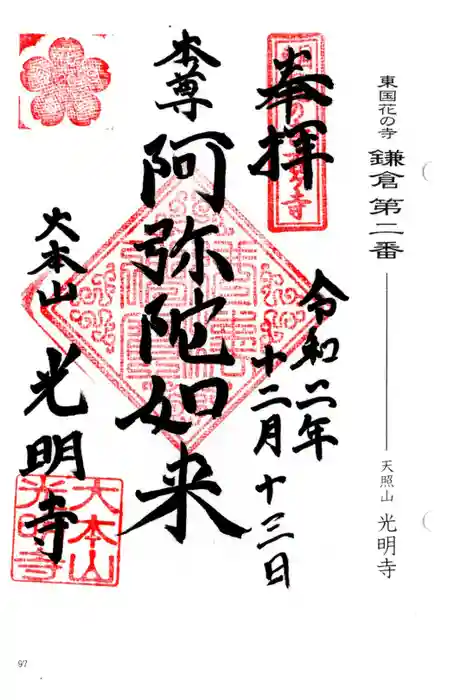 東国花の寺 鎌倉第二番
天照山 光明寺
奉拝
令和二年
十二月十三日
本尊
阿弥陀如来
大本山
光明寺
大本山
光明寺
97